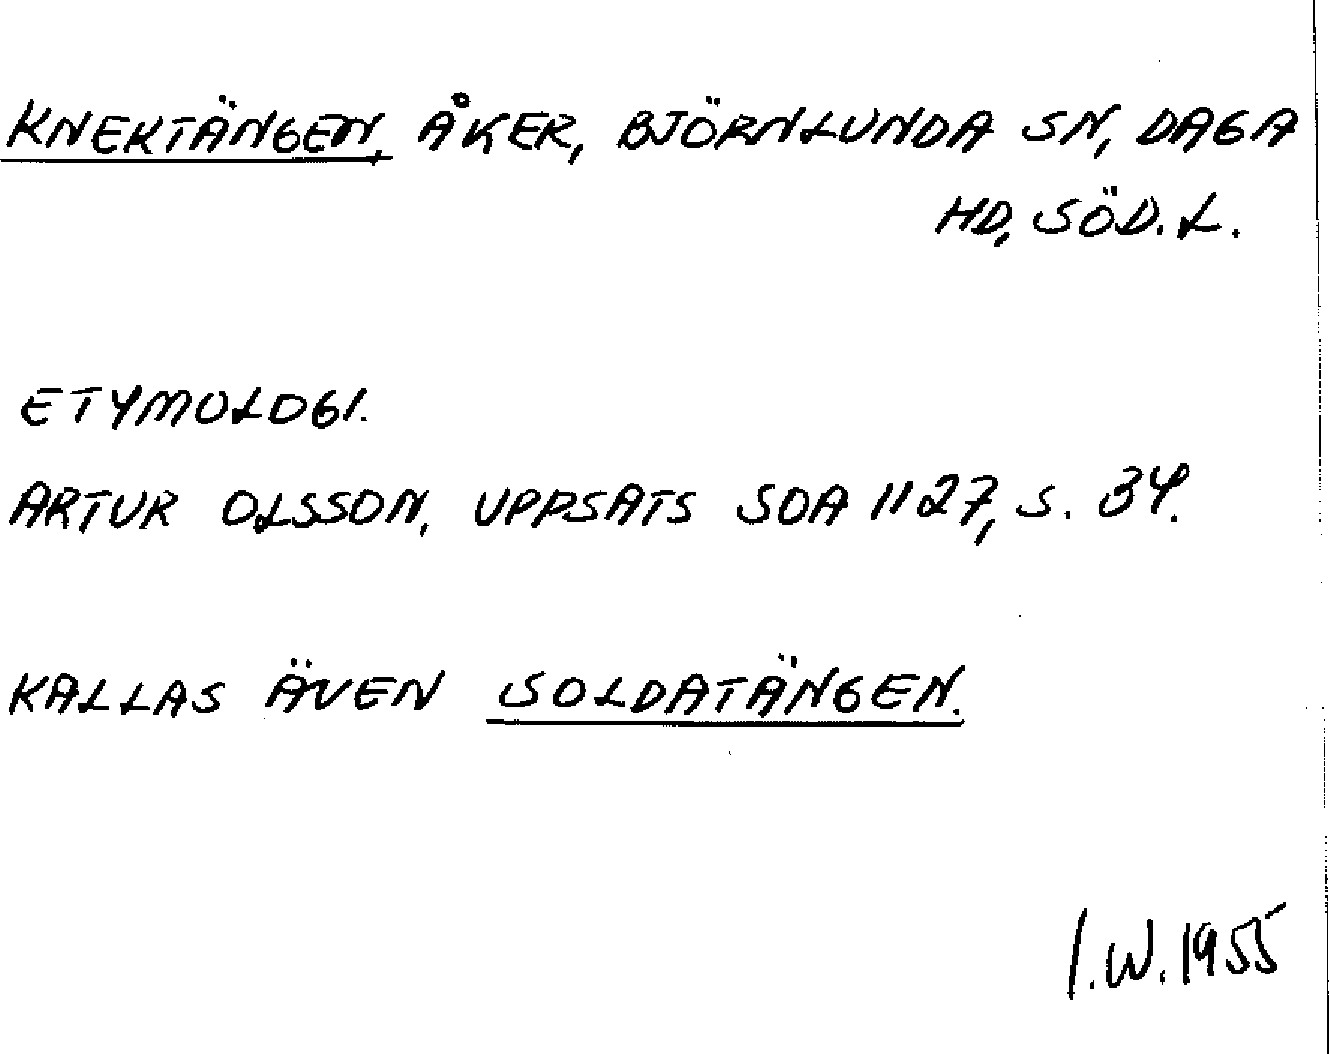 KNEKTÄNGEN, ÅKER, BJÖRNLUNDA SN, DAGA
HD, SÖD.L.
ETYMOLOGI.
ARTUR OLSSON, UPPSATS SOA 1127, S. 34.
KALLAS ÄVEN SOLDATÄNGEN.
I.W.1955